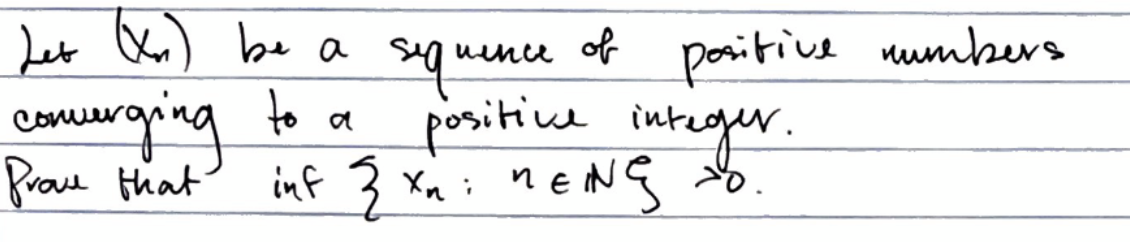 Let (xₙ) be a sequence of positive numbers
converging to a positive integer.
Prove that inf { xₙ : n ∈ ℕ } >0.